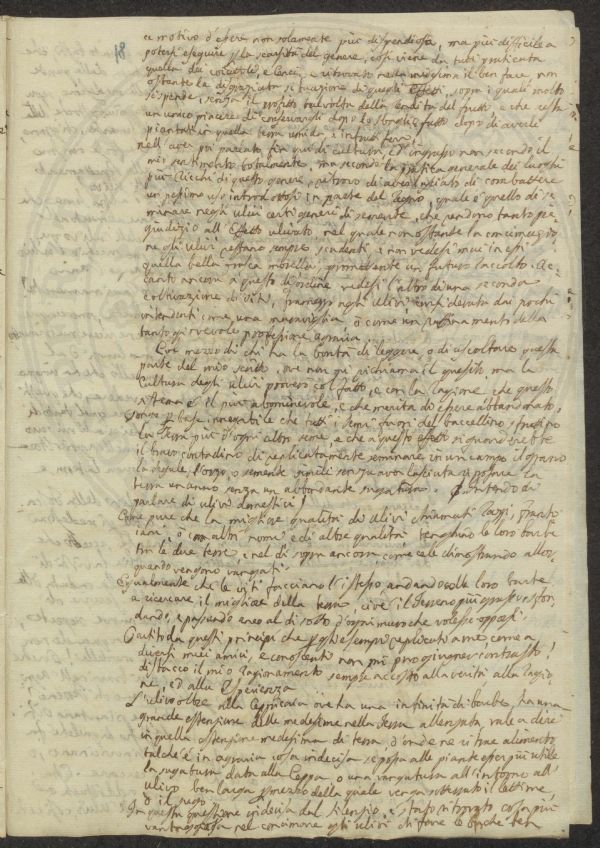 18
e motivo d'esere non solamente più dispendiosa, ma più difficile a
potersi eseguire p la scarsità del genere, così viene da tutti praticata
quella dei e ritrovato nella medesima il ben fare, non
ostante la disgraziata situazione di questi Effetti, sopra i quali molto
si spende, senza il profitto talvolta della rendita del frutto e che resta
un unico piacere di conservargli dopo lo fatto dopo di averli
piantati in quella terra umida e infruttifera
nell'aver poi parlato fin qui di cultura ed ingrassi non secondo il
mio sentimento totalmente, ma secondo la pratica generale dei luoghi
più ricchi di questo genere, mi trovo di aver lasciato di combattere
un pessimo uso introdottosi in parte del Regno, quale è quello di se
minare negli ulivi certi generi di semente, che rendono tanto pre
giudizio all'Effetto ulivato, nel quale non ostante la concimazio
ne gli ulivi restano sempre scadenti e non vedesi mai in essi
quella bella mosca morella, promettente un futuro raccolto. Ac
canto ancora a questo disordine vedesi l'altro di una seconda
coltivazione di viti, framezzo agli ulivi, considerata dai pochi
intendenti come una maraviglia, o come un raffinamento della
tanto giovevole professione agraria.
Col mezzo di chi ha la bontà di leggere, o di ascoltare questa
parte del mio scritto, ove non più richiama il quesito ma la
Cultura degli ulivi provero col fatto, e con la ragione che questo
sistema è il più abominevole, e che merita di essere abbandonato.
Pongo p base innegabile che tutti i semi fuori del baccellino, sfruttino
la Terra più d'ogni altro seme, e che a questo effetto si guarderebbe
il bravo contadino di replicatamente seminare in un campo il grano
la segale, l'orzo, o semente simili senza aver lasciata riposare la
terra un anno senza un abbondante sugatura. Intendo di
parlare di ulivi domestici!
Come pure che la migliore qualità di Ulivi chiamati Razzi, Franto
iani, o con altri nomi e di altre qualità tenghino le loro barbe
fra le due terre, e nel di sopra ancora, come cele dimostrano allor
quando vengono vangati.
Egualmente che le viti facciano l'istesso andando colle loro barbe
a ricercare il migliore della terra, cioè il Terreno più grasso, e sfor
dando, e passando anco al di sotto d'ogni muro che volesse opporsi.
Partito da questi principi che p gli esempi replicati a me, come a
diversi miei amici, e conoscenti non mi pongono in contrasto!
distacco il mio ragionamento sempre accosto alla verità alla ragio
ne, ed alla Esperienza
L'ulivo oltre alla Ceppicaia ove ha una infinità di barbe, ha una
grande estensione delle medesime nella Terra allenzata, vale a dire
in quella estensione medesima di terra, d'onde ne ritrae alimento
talchè è in agraria cosa indecisa se posta alle piante esser più utile
la sugatura data alla Ceppa, o una vangatura all'intorno all'
ulivo ben larga p mezzo della quale venga sotterrato il lettime,
o il sugo.
In questa questione indecisa dal silenzio, è stato ritrovato cosa più
vantaggiosa nel concimare gli ulivi di porre le barbe ben